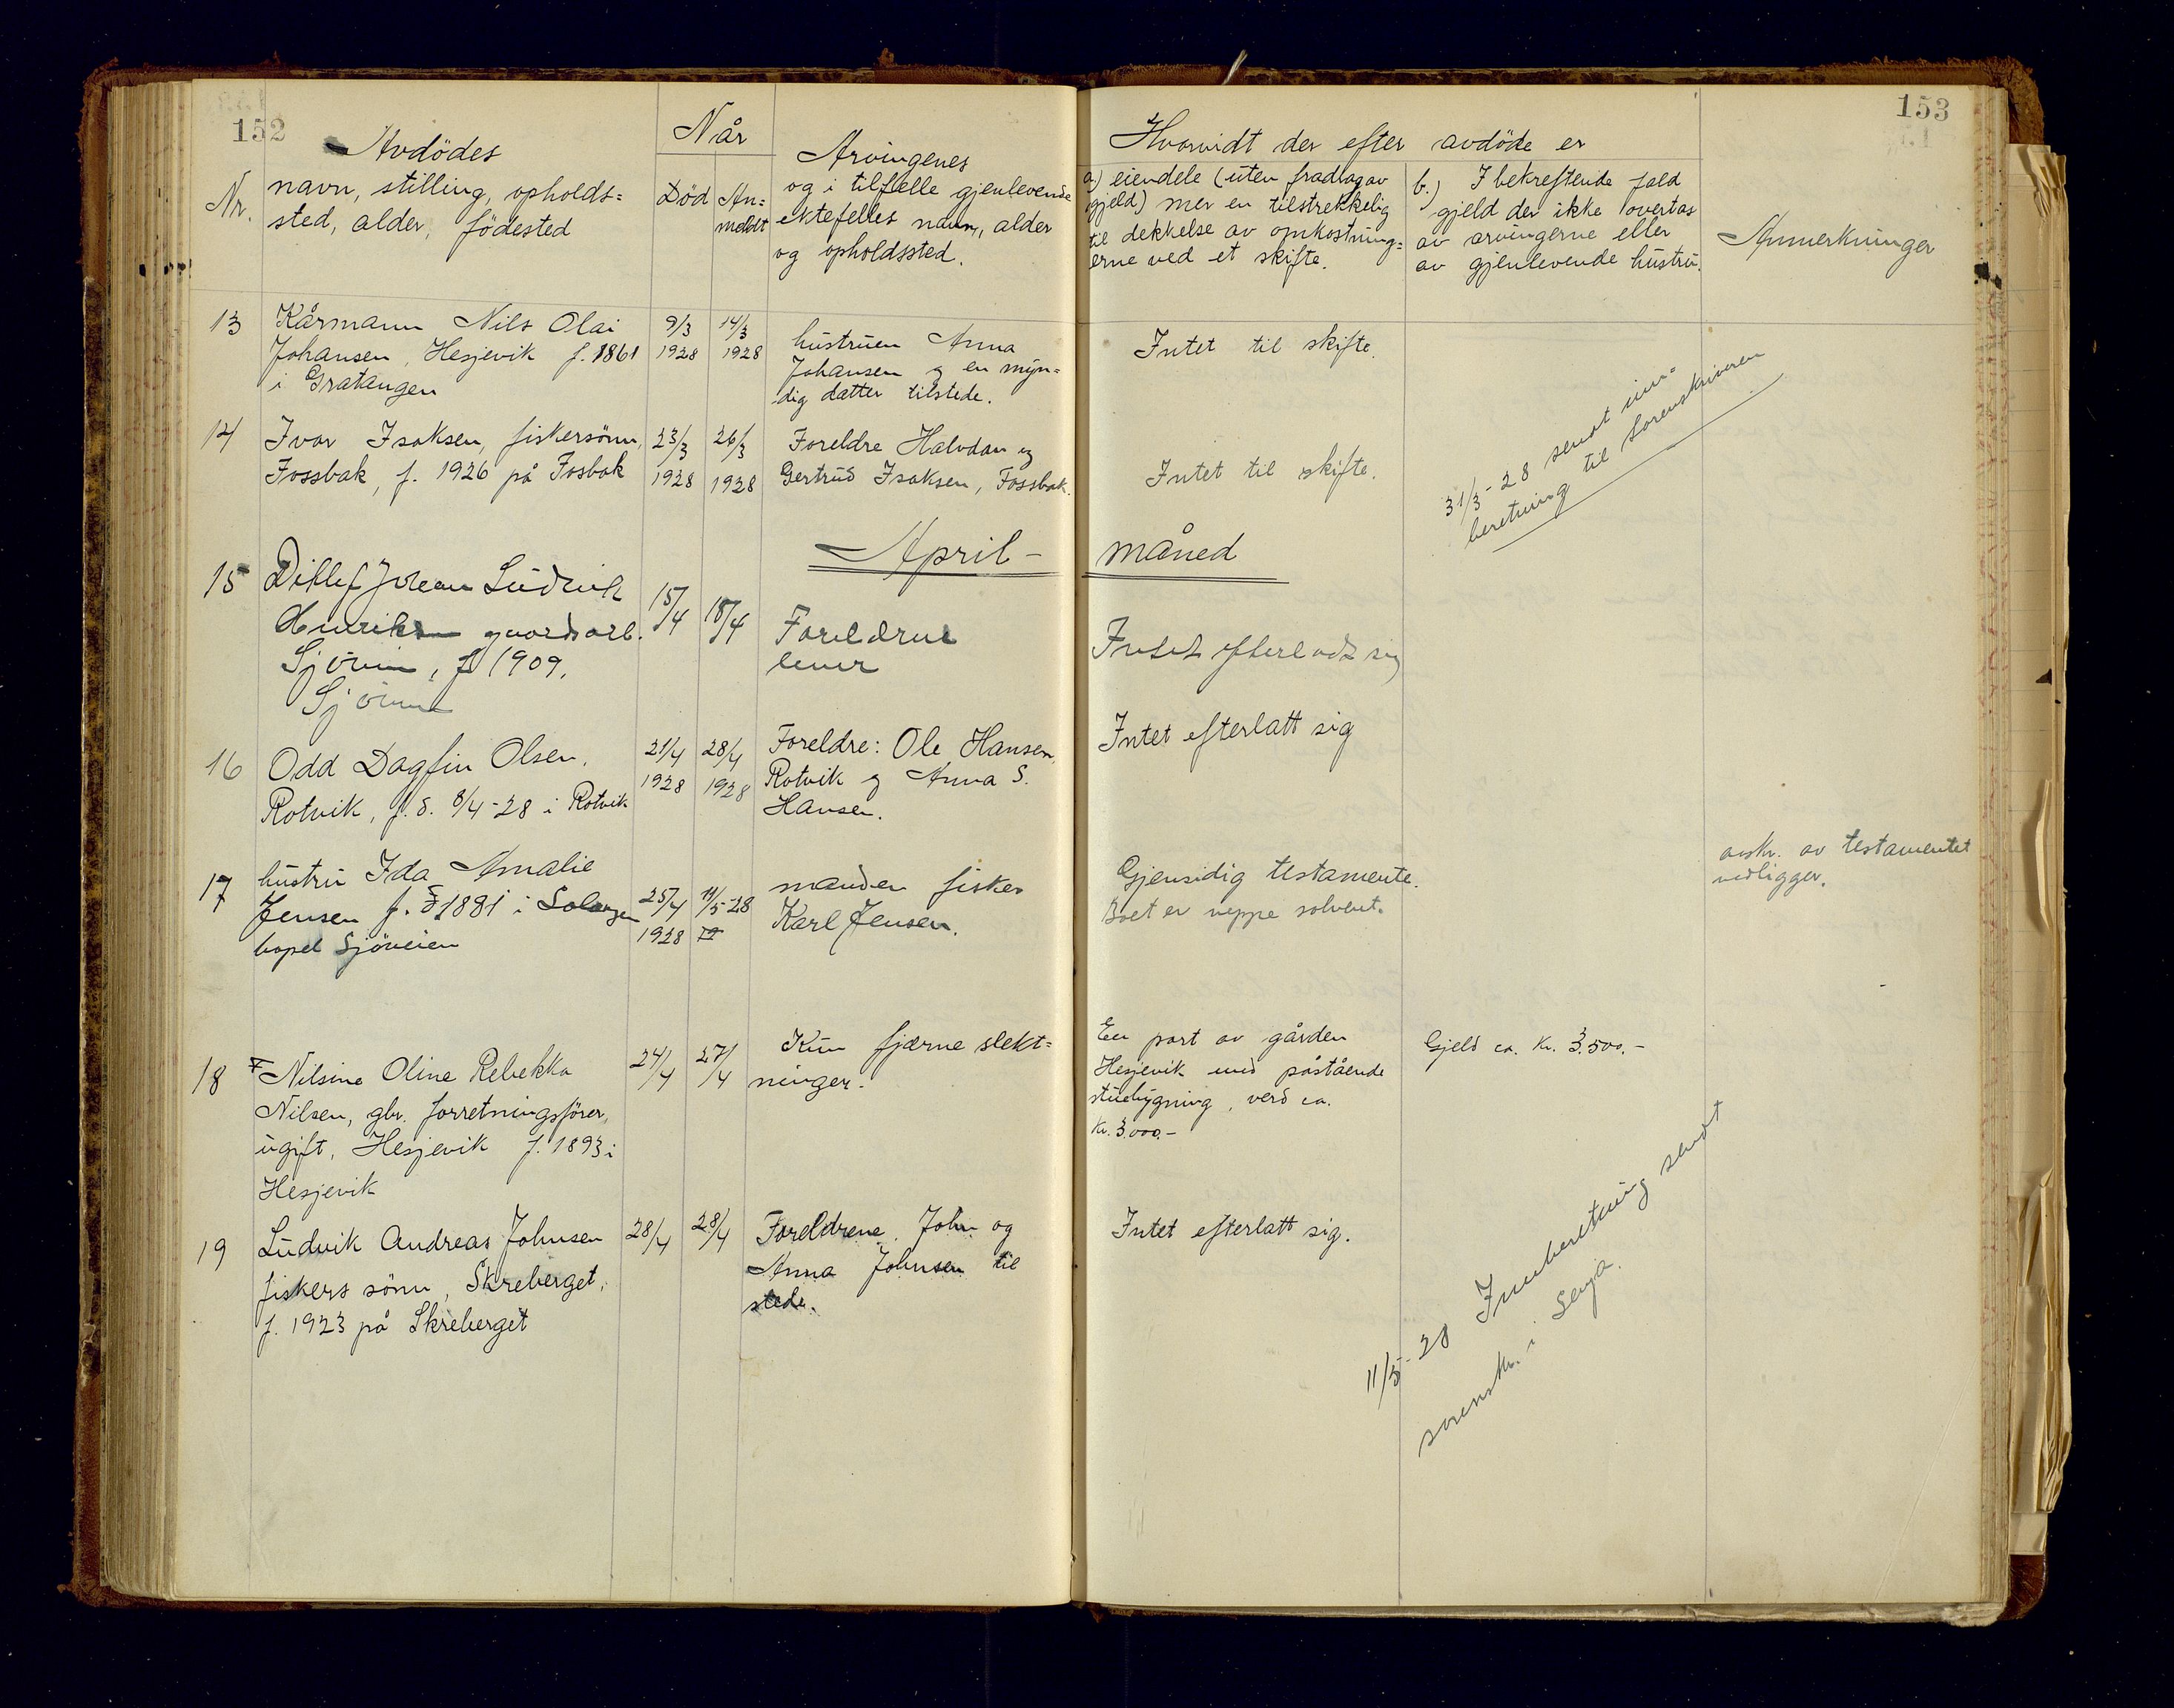 152
153
Nr.
Avdödes
navn, stilling, opholds=
sted, alder, födested
Når
Död
An=
meldt
Arvingenes
og i tilfælle gjenlevende
ektefelles navn, alder
og opholdssted.
Hvorvidt der efter avdöde er
a) eiendele (uten fradrag av
gjeld) mer en tilstrekkelig
til dekkelse av omkostning=
erne ved et skifte.
b.) I bekreftende fald
gjeld der ikke overtas
av arvingerne eller
av gjenlevende hustru.
Anmerkninger
13
Kårmann Nils Olai
Johansen, Hesjevik f. 1861
i Gratangen
9/3
1928
14/3
1928
hustruen Anna
Johansen og en myn=
dig datter tilstede.
Intet til skifte.
14
Ivar Isaksen, fiskersönn,
Fossbak, f. 1926 på Fosbak
23/3
1928
26/3
1928
Foreldre Halvdan og
Gertrud Isaksen, Fossbak.
Intet til skifte.
31/3-28 sendt inn=
beretning til Sorenskriveren
April- måned
15
Ditlef Johan Ludvik
Henriksen gaardsarb.
Sjövein, f 1909,
Sjövein
15/4
18/4
Foreldrene
lever
Intet efterladt sig
16
Odd Dagfin Olsen,
Rotvik, f. d. 8/4-28 i Rotvik
21/4
1928
28/4
1928
Foreldre: Ole Hansen,
Rotvik og Anna S.
Hansen.
Intet efterlatt sig
17
hustru Ida Amalie
Jensen f. 1881 i Salangen
bopel Sjöveien
25/4
1928
11/5-28
manden fisker
Karl Jensen.
Gjensidig testamente.
Boet er neppe solvent.
avskr. av testamentet
vedligger.
18
Nilsine Oline Rebekka
Nilsen, gbr. forretningsförer,
ugift, Hesjevik f. 1893 i
Hesjevik
24/4
27/4
Kun fjærne slekt=
ninger.
En part av gården
Hesjevik med påstående
stuebygning, verd ca.
kr. 3.000.-
Gjeld ca. kr. 3.500.-
19
Ludvik Andreas Johnsen
fiskers sönn, Skreberget,
f. 1923 på Skreberget
28/4
28/4
Foreldrene John og
Anna Johnsen til
stede.
Intet efterlatt sig.
11/5-28 Innberetning sendt
sorenskr. i Senja.